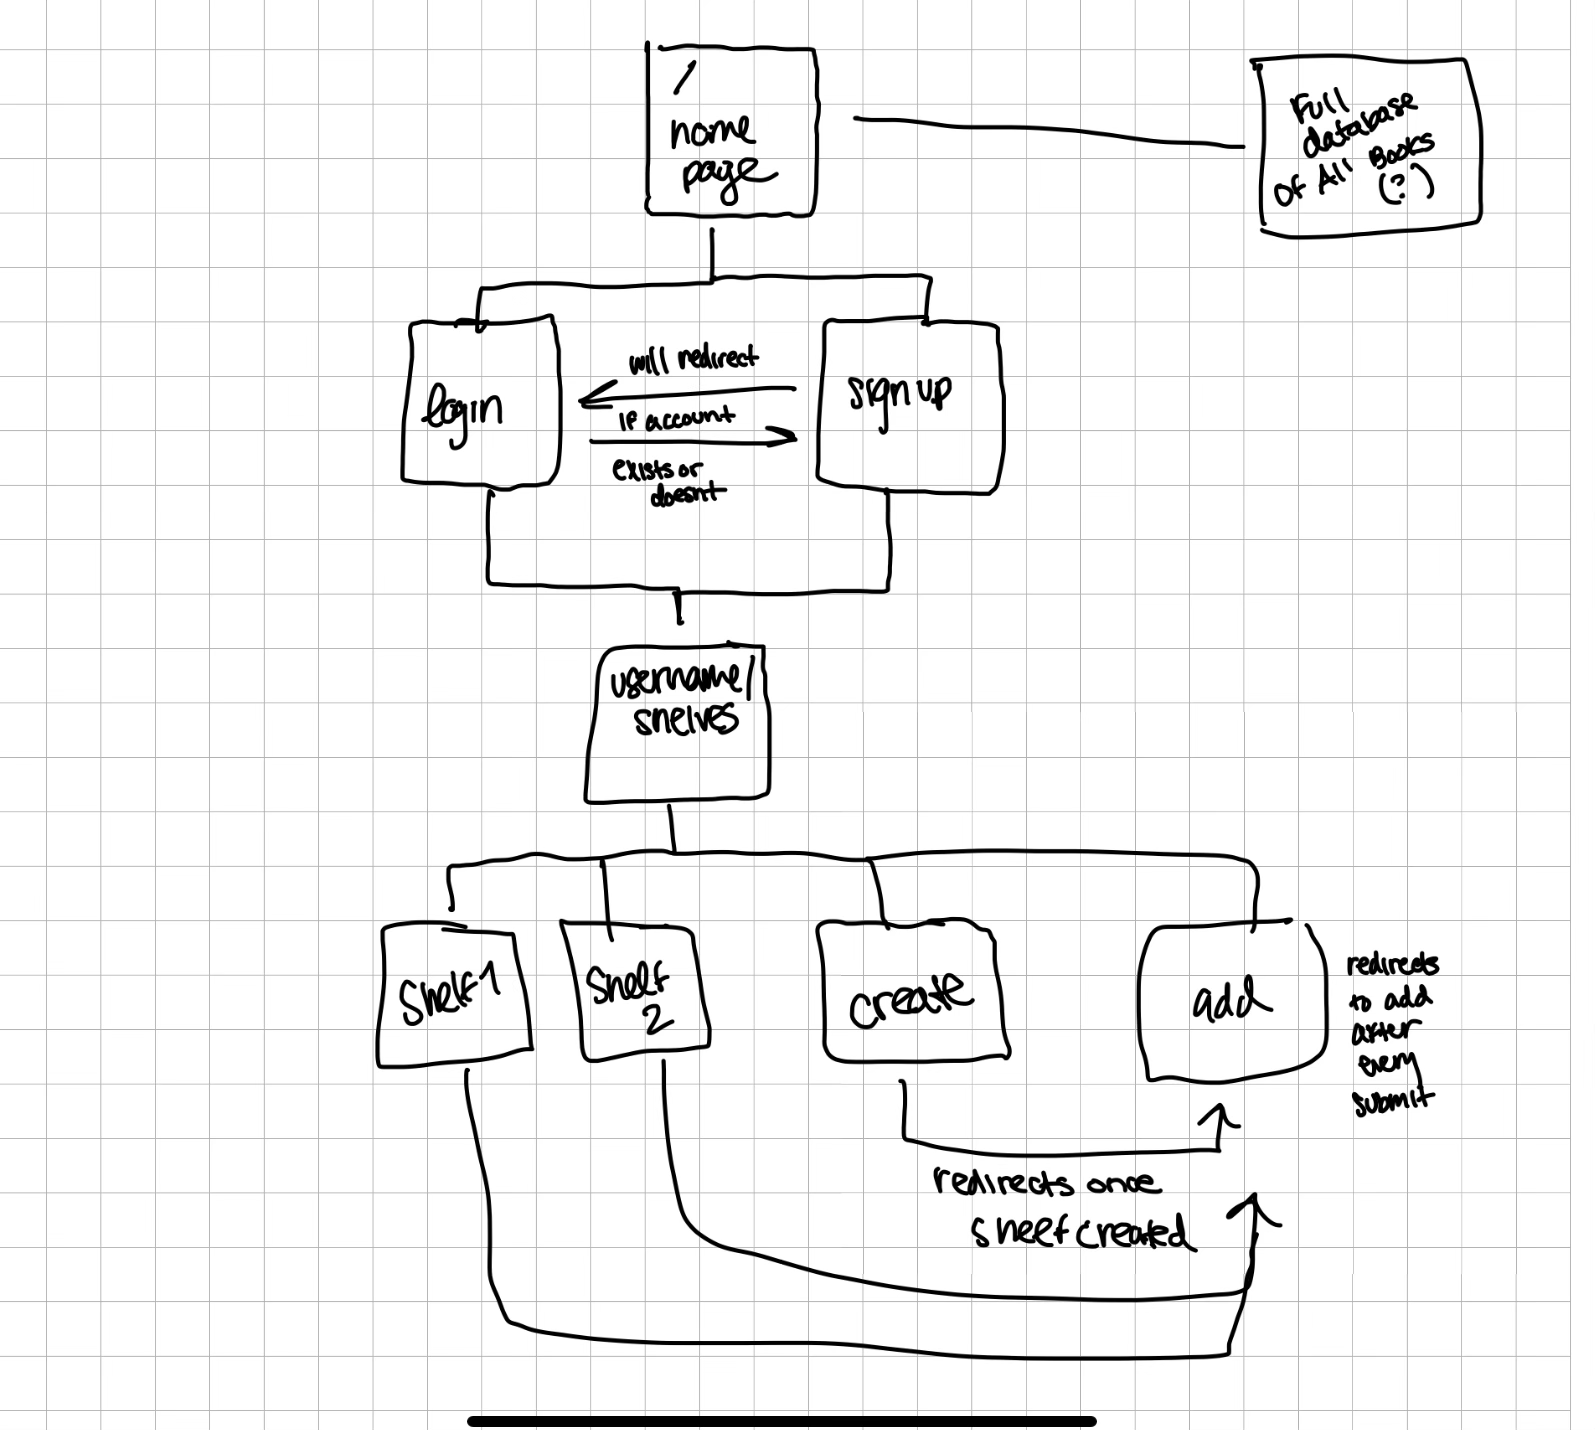 /
home
page
Full
database
Of All Books
(?)
login
will redirect
if account
exists or
doesnt
sign up
username/
shelves
Shelf 1
Shelf
2
create
add
redirects
to add
after
every
submit
redirects once
shelf created